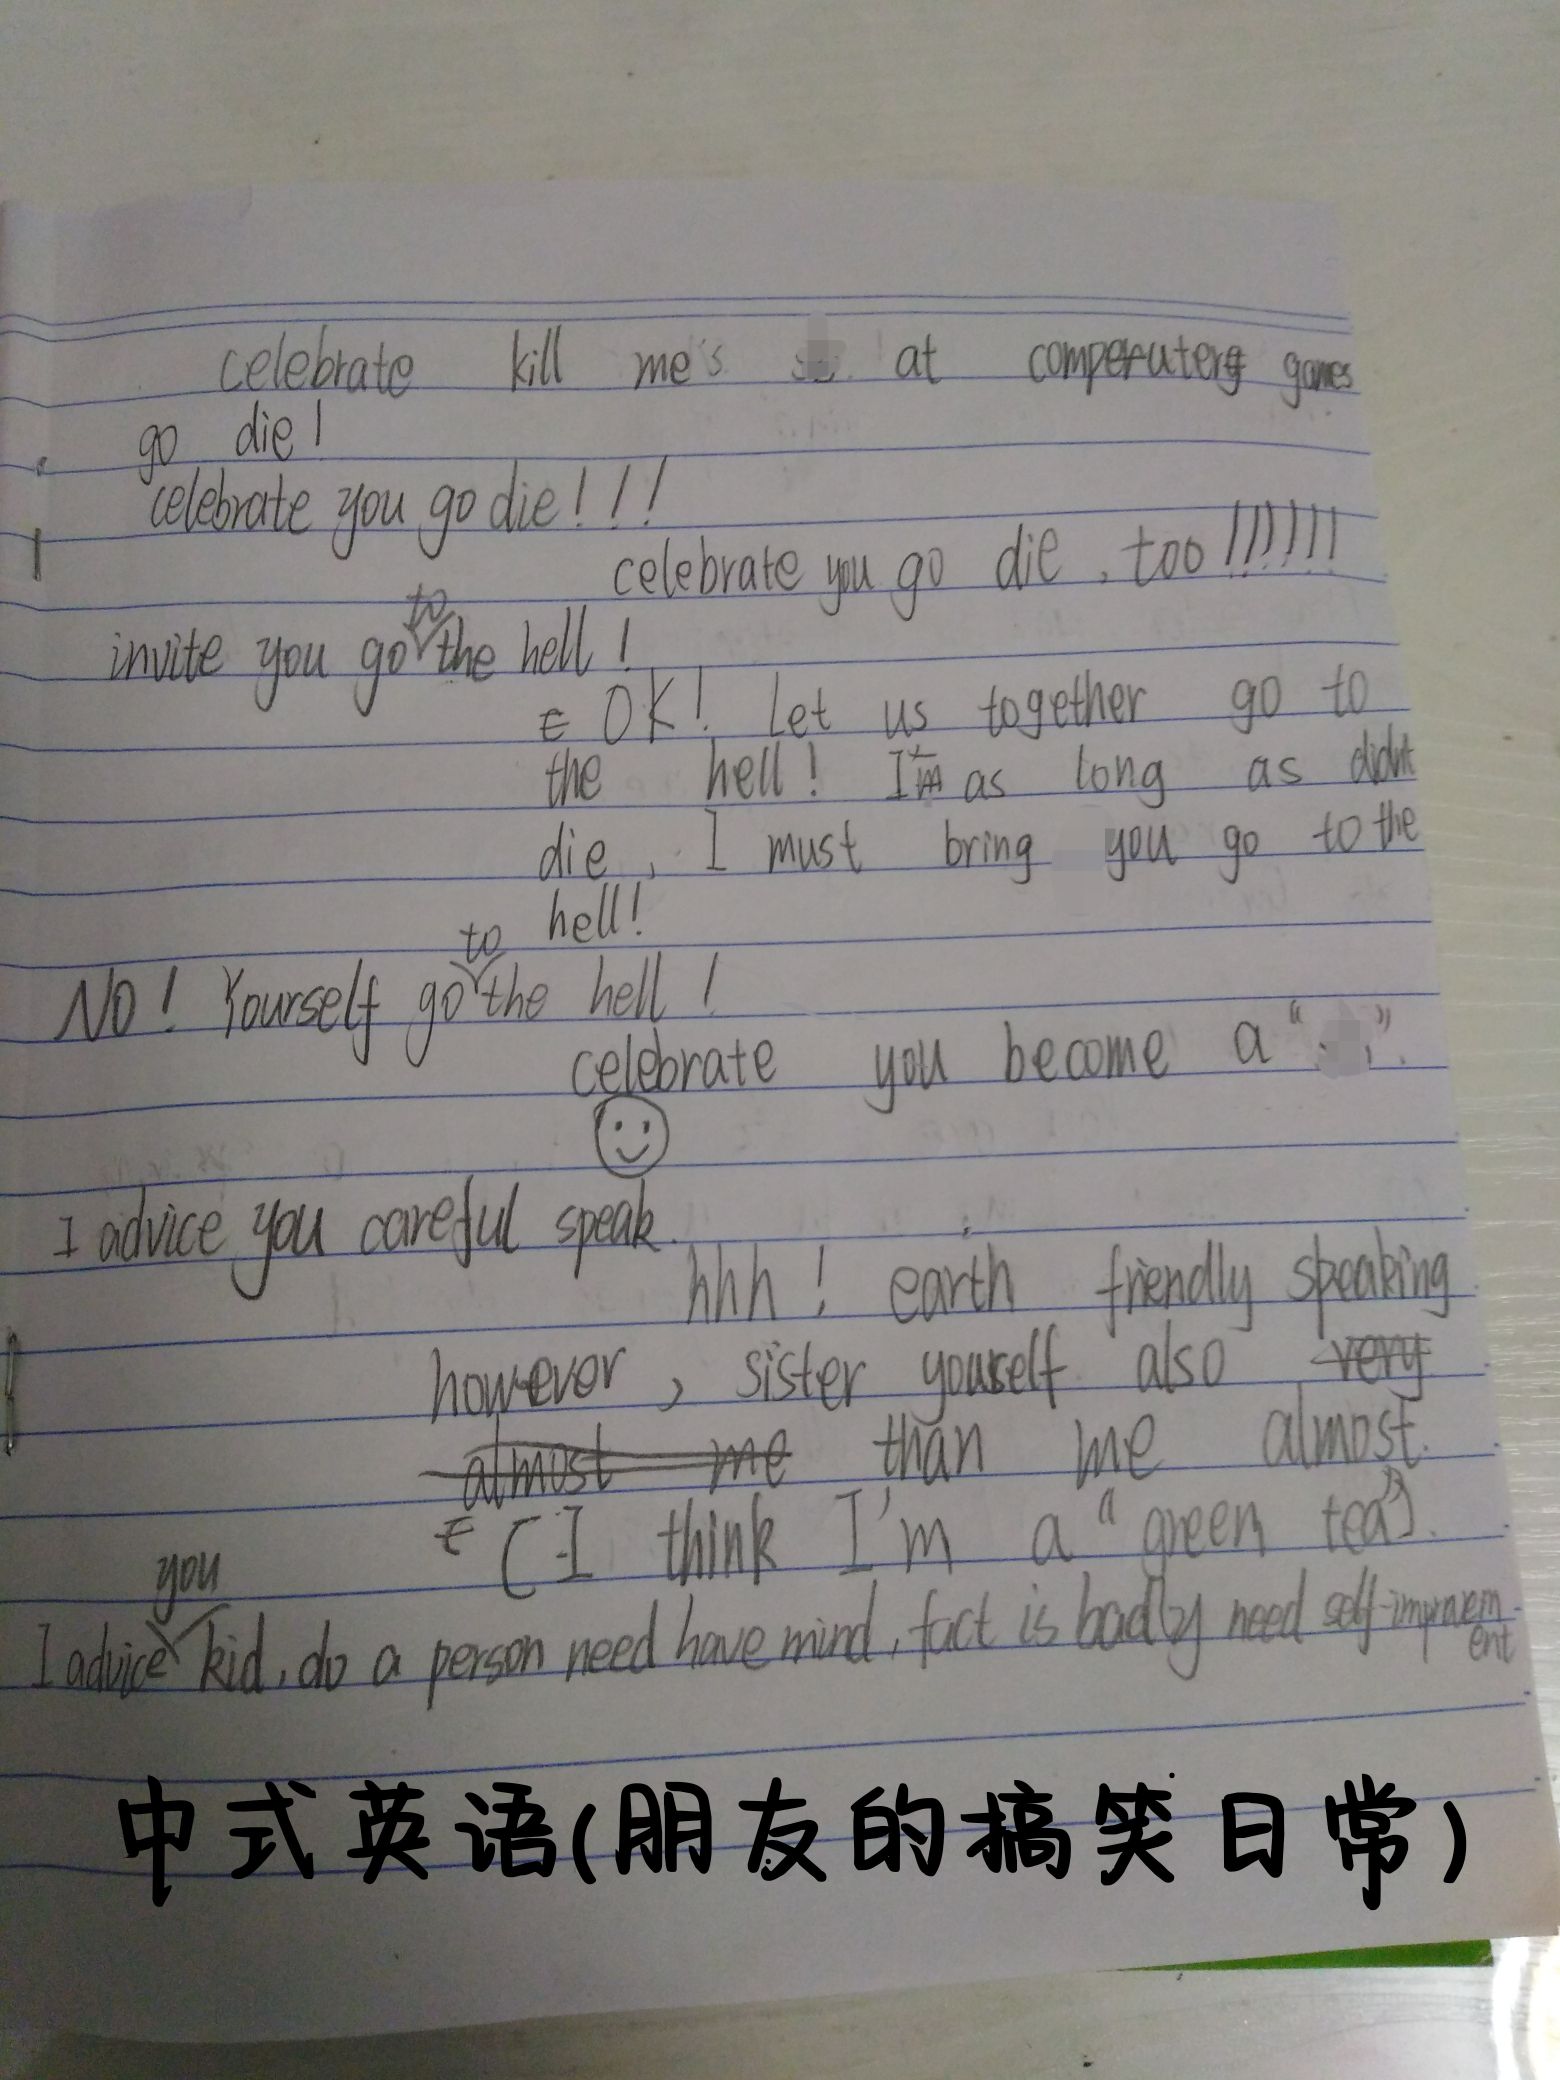 celebrate kill me's at computer games
go die!
celebrate you go die!!!
celebrate you go die, too!!!!!!
invite you go to the hell!
OK! Let us together go to
the hell! I as long as didnt
die, I must bring you go to the
hell!
NO! Yourself go to the hell!
celebrate you become a " ".
I advice you careful speak.
hhh! earth friendly speaking
however, sister youself also very
almost me than me almost.
(I think I'm a "green tea").
I advice you kid, do a person need have mind, fact is badly need self-improvem-
ent
中式英语(朋友的搞笑日常)